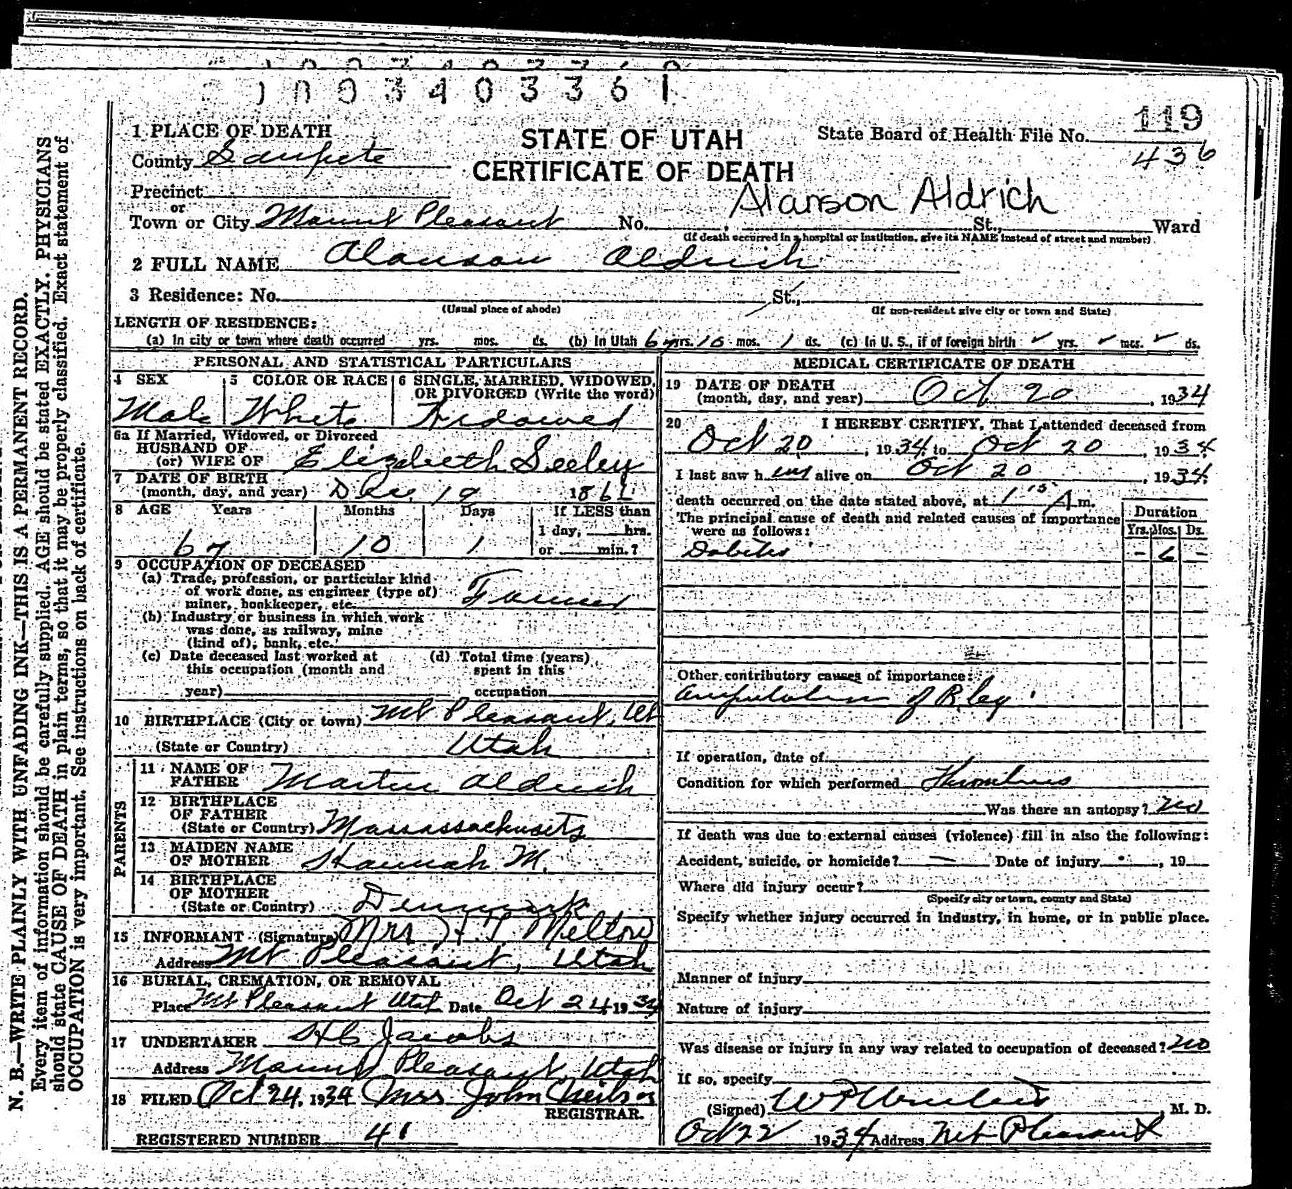 1003403361
119
436
STATE OF UTAH
CERTIFICATE OF DEATH
State Board of Health File No.
Alanson Aldrich
1 PLACE OF DEATH
County Sanpete
Precinct
or
Town or City Mount Pleasant No. St., Ward
(If death occurred in a hospital or institution, give its NAME instead of street and number)
2 FULL NAME Alanson Aldrich
3 Residence: No. St.,
(Usual place of abode) (If non-resident give city or town and State)
LENGTH OF RESIDENCE:
(a) In city or town where death occurred yrs. mos. ds. (b) In Utah yrs. 10 mos. 1 ds. (c) In U. S., if of foreign birth ✓ yrs. ✓ mos. ✓ ds.
PERSONAL AND STATISTICAL PARTICULARS
4 SEX 5 COLOR OR RACE 6 SINGLE, MARRIED, WIDOWED, OR DIVORCED (Write the word)
Male White Widowed
6a If Married, Widowed, or Divorced
HUSBAND OF
(or) WIFE OF Elizabeth Seeley
7 DATE OF BIRTH
(month, day, and year) Dec 19
8 AGE Years Months Days If LESS than
1 day, hrs.
or min.?
10 1
9 OCCUPATION OF DECEASED
(a) Trade, profession, or particular kind
of work done, as engineer (type of)
miner, bookkeeper, etc. Farmer
(b) Industry or business in which work
was done, as railway, mine
(kind of), bank, etc.
(c) Date deceased last worked at
this occupation (month and
year)
(d) Total time (years)
spent in this
occupation
10 BIRTHPLACE (City or town) Mt Pleasant, Ut
(State or Country) Utah
PARENTS
11 NAME OF
FATHER Martin Aldrich
12 BIRTHPLACE
OF FATHER
(State or Country) Massassachusets
13 MAIDEN NAME
OF MOTHER Hannah M.
14 BIRTHPLACE
OF MOTHER
(State or Country) Denmark
15 INFORMANT (Signature) Mrs H T Melton
Address Mt Pleasant, Utah
16 BURIAL, CREMATION, OR REMOVAL
Place Mt Pleasant Utah Date Oct 24 1934
17 UNDERTAKER HC Jacobs
Address Mount Pleasant Utah
18 FILED Oct 24, 1934 Mrs John Neilson
REGISTRAR.
REGISTERED NUMBER 41
MEDICAL CERTIFICATE OF DEATH
19 DATE OF DEATH
(month, day, and year) Oct 20, 1934
20 I HEREBY CERTIFY, That I attended deceased from
Oct 20, 1934, to Oct 20, 1934
I last saw him alive on Oct 20, 1934
death occurred on the date stated above, at 1 15 A.m.
The principal cause of death and related causes of importance
were as follows:
Duration
Yrs. Mos. Ds.
Diabetes - 6 -
Other contributory causes of importance:
amputation of R leg
If operation, date of
Condition for which performed Thrombus
Was there an autopsy? No
If death was due to external causes (violence) fill in also the following:
Accident, suicide, or homicide? — Date of injury , 19
Where did injury occur?
(Specify city or town, county and State)
Specify whether injury occurred in industry, in home, or in public place.
Manner of injury
Nature of injury
Was disease or injury in any way related to occupation of deceased? No
If so, specify
(Signed) M. D.
Oct 22 1934 Address Mt Pleasant
N. B.—WRITE PLAINLY WITH UNFADING INK—THIS IS A PERMANENT RECORD.
Every item of information should be carefully supplied. AGE should be stated EXACTLY. PHYSICIANS
should state CAUSE OF DEATH in plain terms, so that it may be properly classified. Exact statement of
OCCUPATION is very important. See instructions on back of certificate.